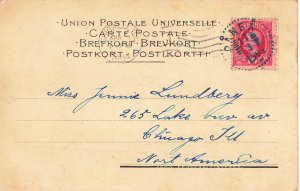 UNION POSTALE UNIVERSELLE.
CARTE POSTALE
BREFKORT · BREVKORT.
POSTKORT · POSTIKORTTI
Miss Jennie Lundberg
265 Lake view av
Chicago Ill
Nort America